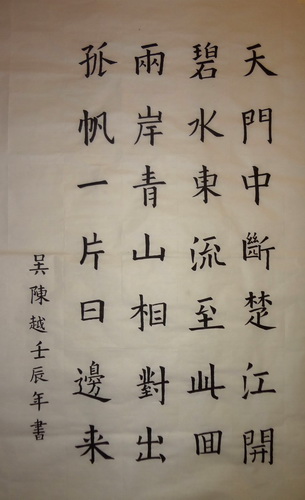 天門中斷楚江開
碧水東流至此回
兩岸青山相對出
孤帆一片日邊来
吴陳越壬辰年書